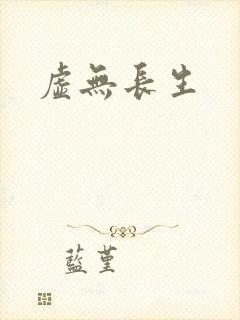 虛無長生
藍堇